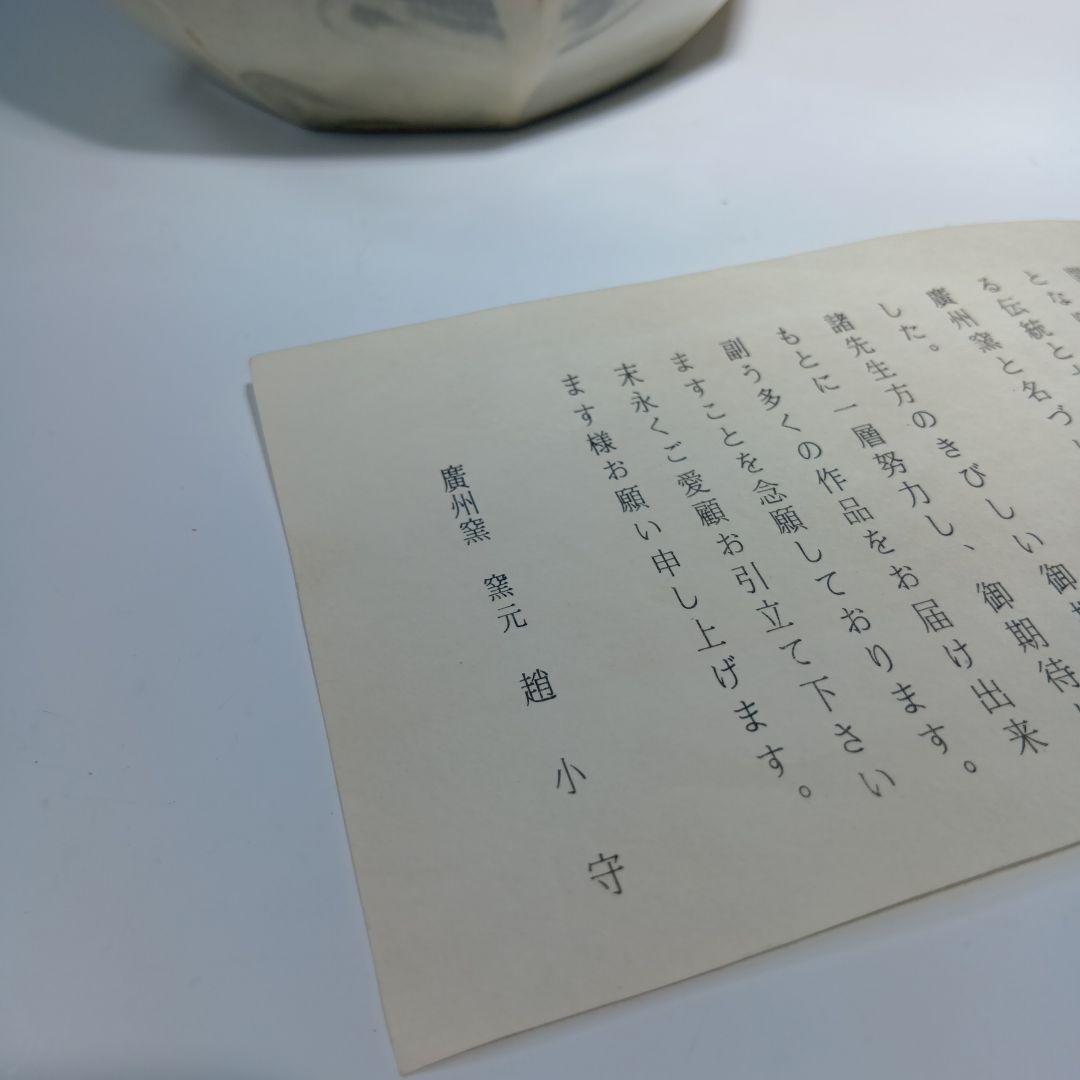 とな
る伝統と
廣州窯と名づ
した。
諸先生方のきびしい御
もとに一層努力し、御期待
副う多くの作品をお届け出来
ますことを念願しております。
末永くご愛顧お引立て下さい
ます様お願い申し上げます。
廣州窯 窯元 趙小守